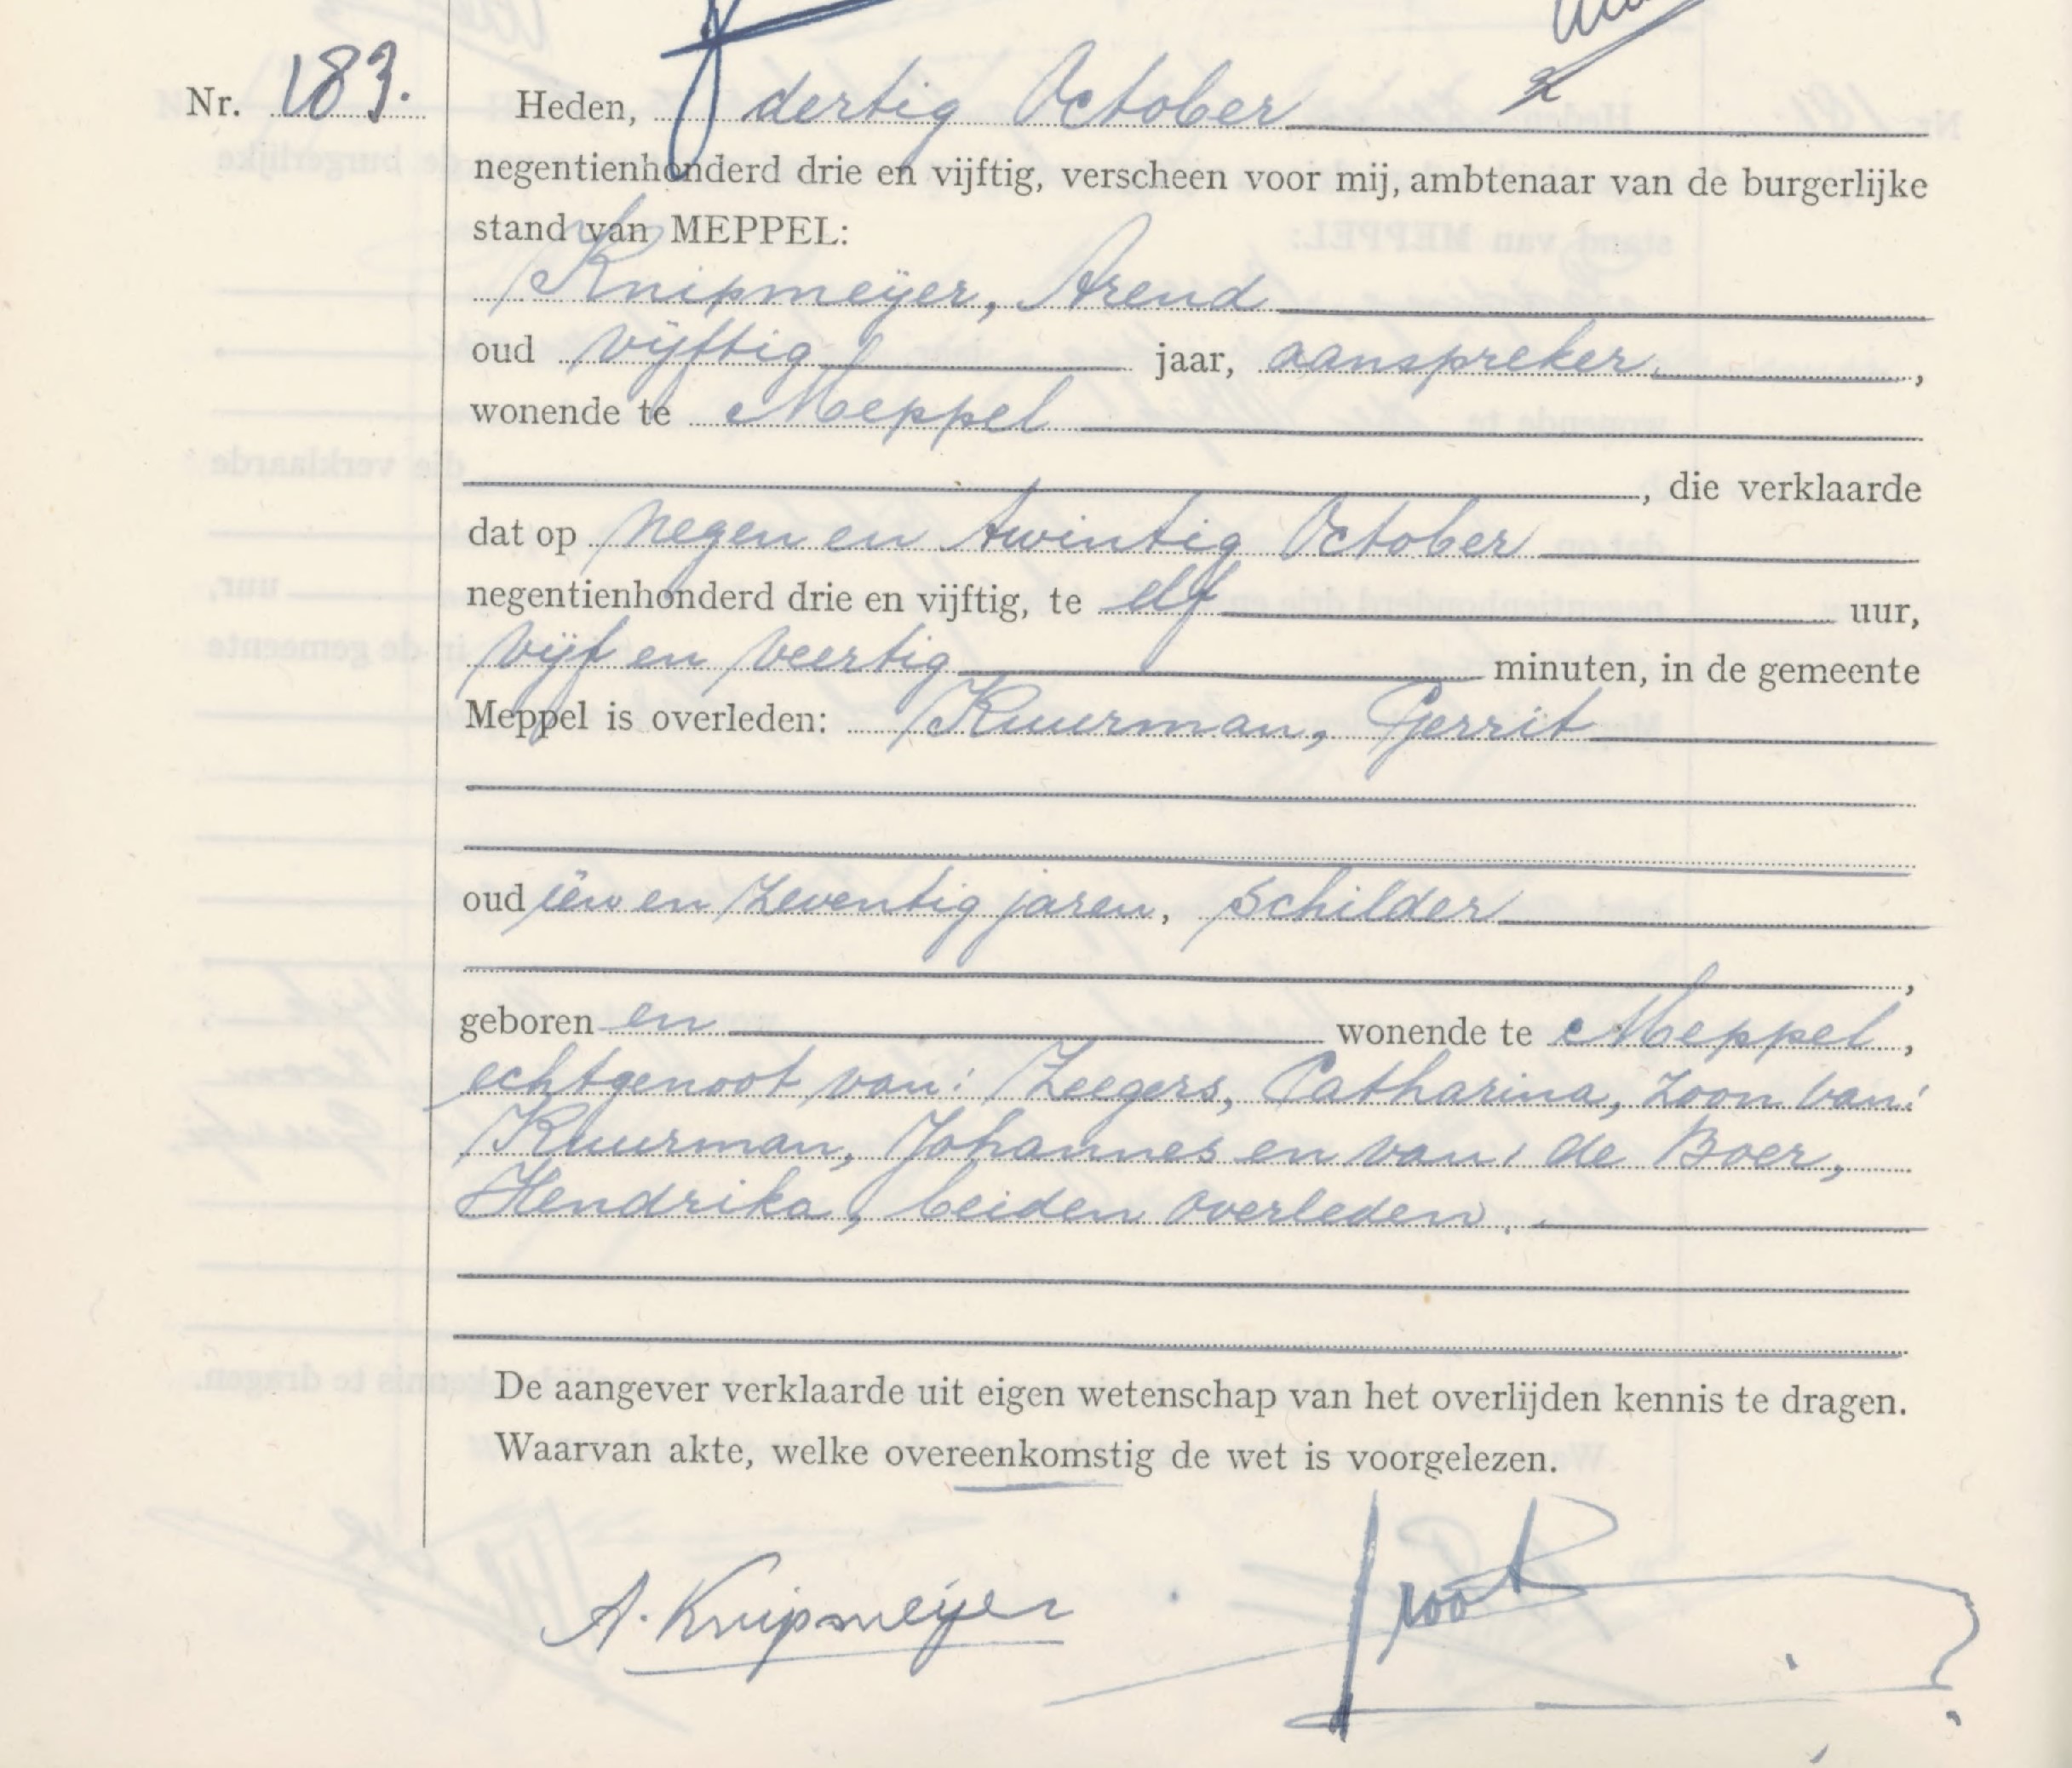 Nr. 183.
Heden, dertig October
negentienhonderd drie en vijftig, verscheen voor mij, ambtenaar van de burgerlijke
stand van MEPPEL:
Knipmeijer, Arend
oud vijftig jaar, aanspreker,
wonende te Meppel
, die verklaarde
dat op negen en twintig October
negentienhonderd drie en vijftig, te elf uur,
vijf en veertig minuten, in de gemeente
Meppel is overleden: Kuurman, Gerrit
oud één en zeventig jaren, schilder
,
geboren en wonende te Meppel,
echtgenoot van: Zeegers, Catharina, zoon van:
Kuurman, Johannes en van: de Boer,
Hendrika, beiden overleden.
De aangever verklaarde uit eigen wetenschap van het overlijden kennis te dragen.
Waarvan akte, welke overeenkomstig de wet is voorgelezen.
A. Knipmeijer